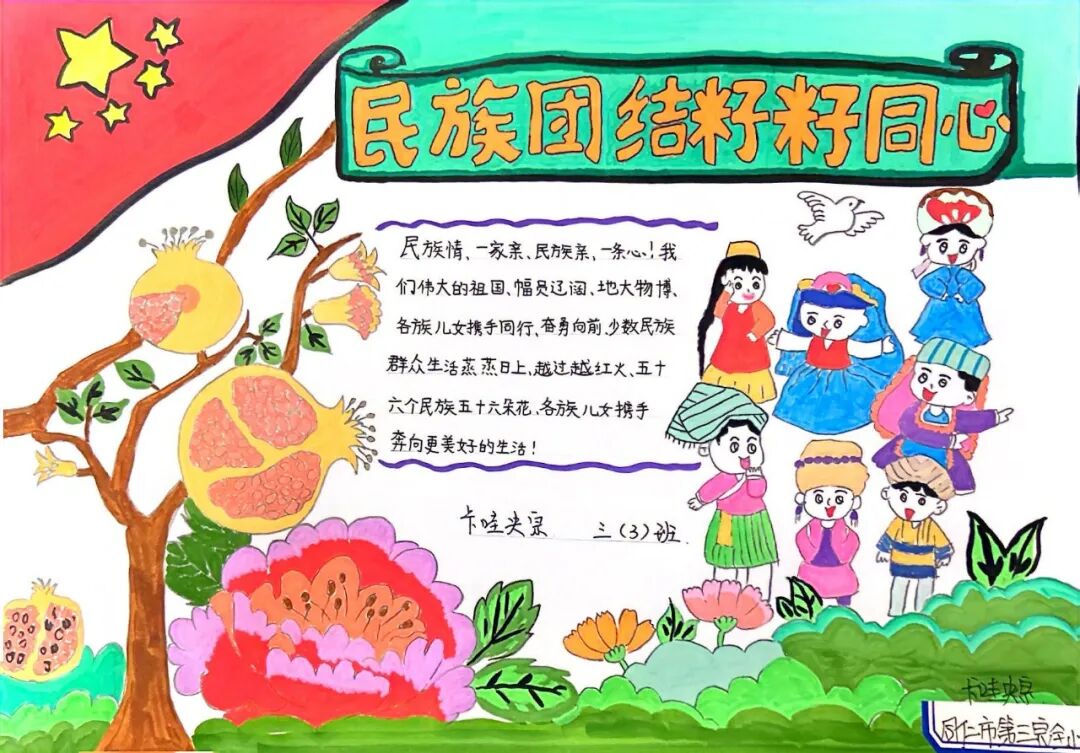 民族团结籽籽同心
民族情、一家亲、民族亲、一条心！我
们伟大的祖国、幅员辽阔、地大物博、
各族儿女携手同行、奋勇向前、少数民族
群众生活蒸蒸日上、越过越红火、五十
六个民族五十六朵花、各族儿女携手
奔向更美好的生活！
卡哇央宗 三(3)班.
卡哇央宗
同仁市第三完全小